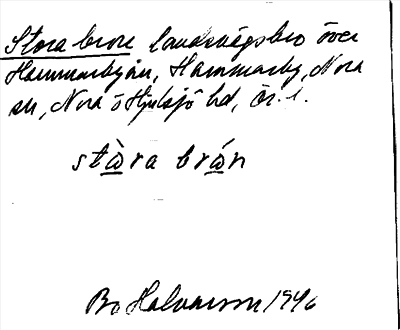 Stora bron landsvägsbro över
Hammarbyån, Hammarby, Nora
sn, Nora o Hjulsjö hd, Ör. l.
stà̲ra brá̲n
Bo Halvarson 1946